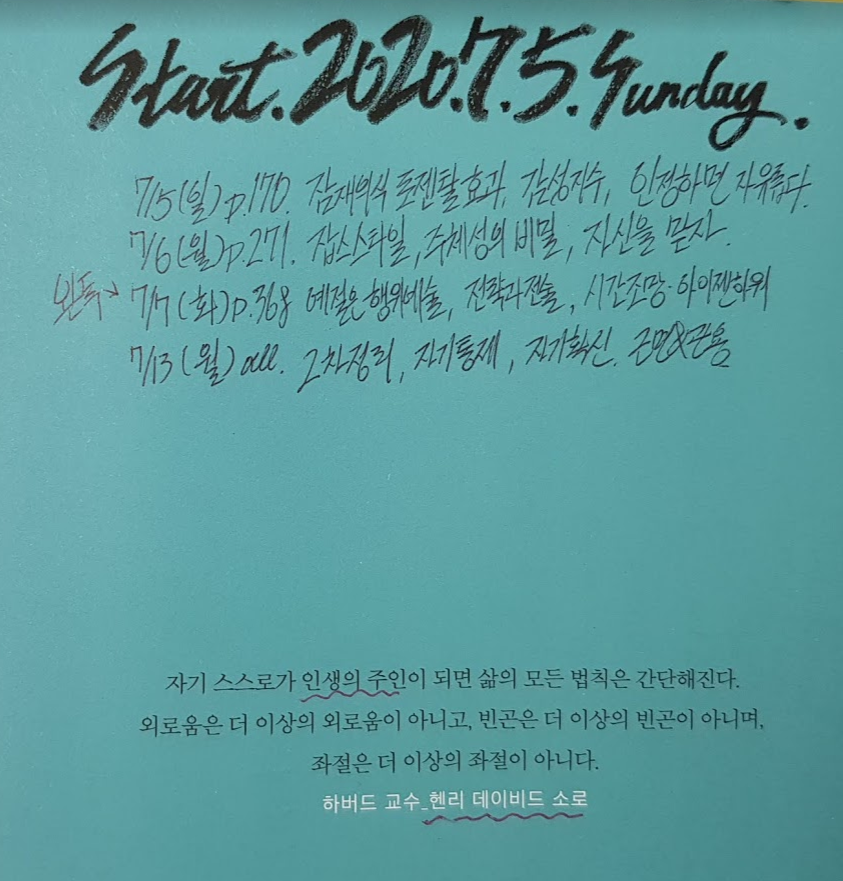 Start. 2020. 7. 5. Sunday.
7/5(일) p.170. 잠재의식 로젠탈 효과, 감성지수, 인정하면 자유롭다.
7/6(월) p.271. 잡스스타일, 주체성의 비밀, 자신을 믿자.
완독→ 7/7(화) p.368 예절은 행위예술, 전략과전술, 시간조망·아이젠하워
7/13(월) all. 2차정리, 자기통제, 자기확신. 근면&관용
자기 스스로가 인생의 주인이 되면 삶의 모든 법칙은 간단해진다.
외로움은 더 이상의 외로움이 아니고, 빈곤은 더 이상의 빈곤이 아니며,
좌절은 더 이상의 좌절이 아니다.
하버드 교수_헨리 데이비드 소로